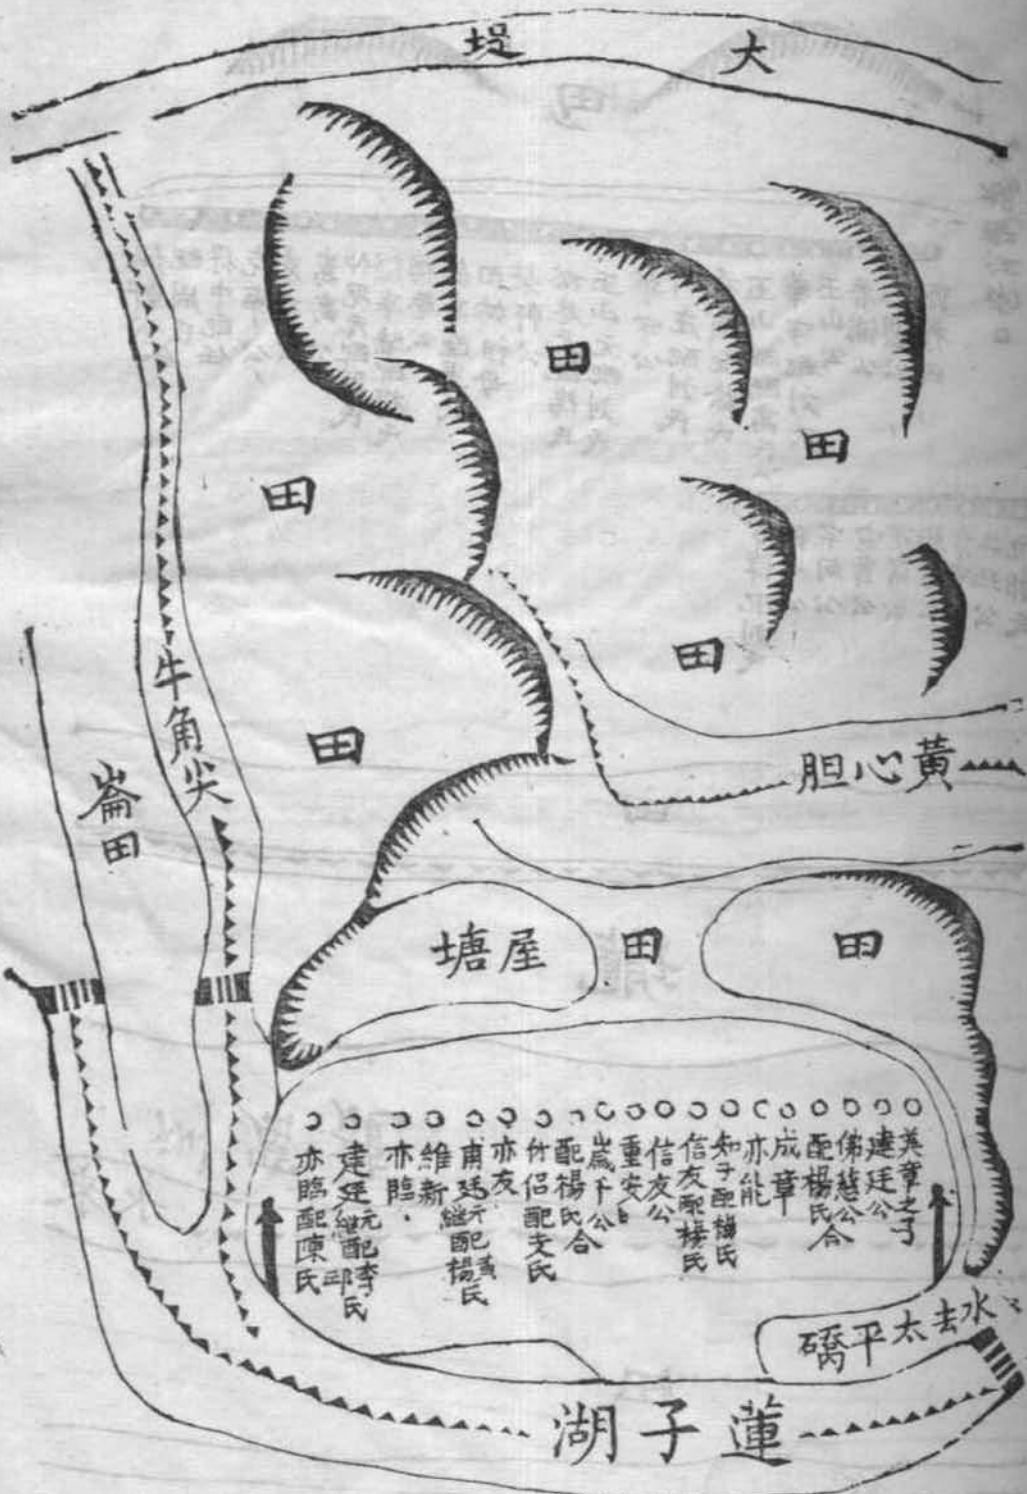 大堤
田
田
田
田
田
牛角尖
崙田
黃心胆
田
田
屋塘
英章之子
建廷公
佛慈公
配楊氏合
成章
亦能
知子配楊氏
信友配楊氏
信友公
重安
嵗千公
配楊氏合
什侣配文氏
亦友
甫廷元配黃氏
継配楊氏
維新
亦臨
建廷元配李氏
継配邱氏
亦臨配陳氏
水去太平礄
蓮子湖